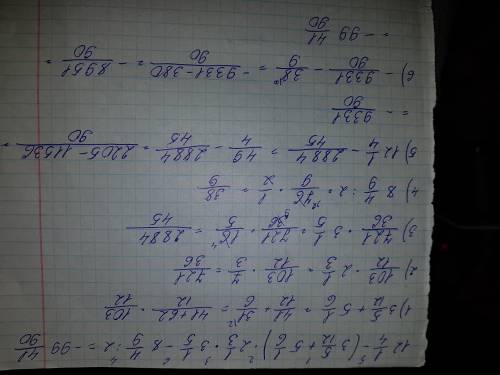 12 1/4 - (3 5/12 + 5 1/6) · 2 1/3 · 3 1/5 - 8 4/9 : 2 = - 99 41/90
1) 3 5/12 + 5 1/6 = 41/12 + 31/6 = 41+62/12 · 103/12
2) 103/12 · 2 1/3 = 103/12 · 7/3 = 721/36
3) 721/36 · 3 1/5 = 721/36 · 16/5 = 2884/45
4) 8 4/9 : 2 = 76/9 · 1/2 = 38/9
5) 12 1/4 - 2884/45 = 49/4 - 2884/45 = 2205-11536/90 =
= - 9331/90
6) - 9331/90 - 38/9 = - 9331-380/90 = - 8951/90 =
= - 99 41/90